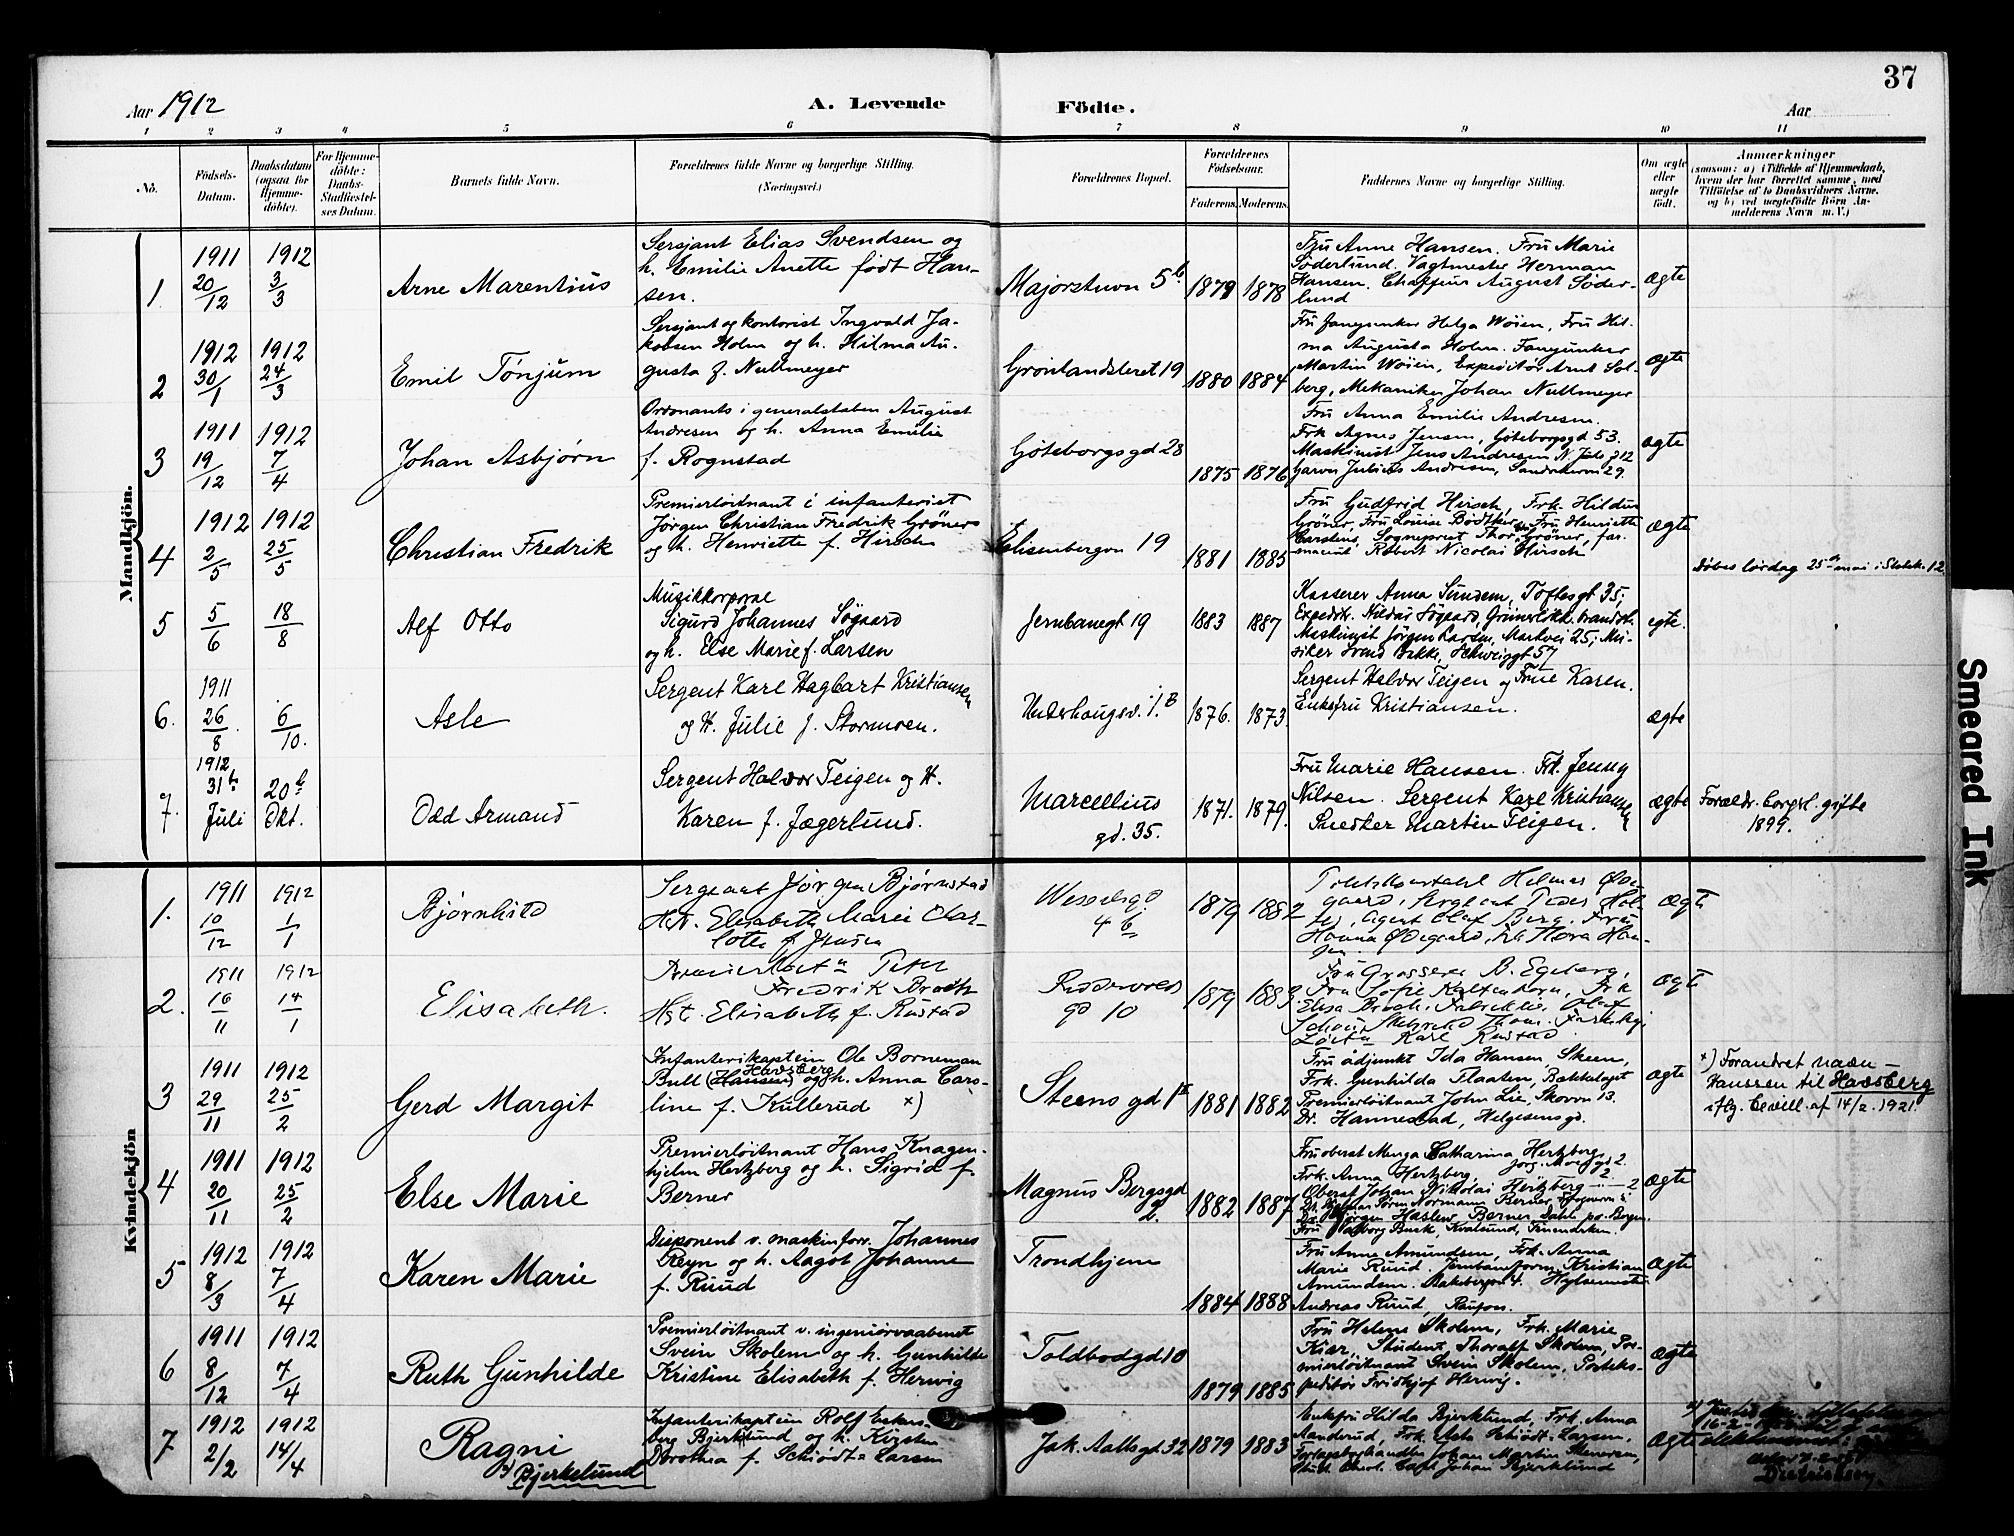 37
Aar 1912
A. Levende
Födte.
Aar
1 2 3 4 5 6 7 8 9 10 11
No.
Födsels-
Datum.
Daabsdatum
(ogsaa for
Hjemme-
döbte).
For Hjemme-
döbte:
Daabs-
Stadfæstel-
ses Datum.
Barnets fulde Navn.
Forældrenes fulde Navne og borgerlige Stilling.
(Næringsvei.)
Forældrenes Bopæl.
Forældrenes
Födselsaar.
Faderens.
Moderens.
Faddernes Navne og borgerlige Stilling.
Om ægte
eller
uægte
födt.
Anmærkninger
(saasom: a) i Tilfælde af Hjemmedaab,
hvem der har forrettet samme, med
Tilföielse af to Daabsvidners Navne,
og b) ved uægtefödte Börn An-
melderens Navn m. V.)
Mandkjön.
1.
1911
20/12
1912
3/3
Arne Marentius
Sersjant Elias Svendsen og
h. Emilie Anette født Han-
sen.
Majorstuvn 5b
1879
1878
Fru Anne Hansen. Fru Marie
Söderlund. Vagtmester Herman
Hansen. Chaffeur August Söder-
lund
ægte
2
1912
30/1
1912
24/3
Emil Tønjum
Sersjant og kontorist Ingvald Ja-
kobsen Holm og h. Hilma Au-
gusta f. Nullmeyer
Grønlandsleret 19
1880
1884
Fru fanejunker Helga Wøien, Fru Hil-
ma Augusta Holm. Fanejunker
Martin Wøien, Expeditør Arnt Sol-
berg, Mekaniker Johan Nullmeyer
ægte
3
1911
19/12
1912
7/4
Johan Asbjørn
Ordonants i generalstaben August
Andresen og h. Anna Emilie
f. Rognstad
Göteborgsgd 28
1875
1876
Fru Anna Emilie Andresen.
Frk Agnes Jensen, Göteborgsgd 53.
Maskinist Jens Andresen
Garver Julius Andresen, 29.
ægte
4
1912
2/5
1912
25/5
Christian Fredrik
Premierløitnant i infanteriet
Jørgen Christian Fredrik Grøner
og h. Henriette f. Hirsch
Elisenbergvn 19
1881
1885
Fru Gudfrid Hirsch, Frk. Hildur
Gröner, Fru Louise Bødtker, Fru Henriette
Carstens, Sogneprest Thor Gröner, far-
maceut Robert Nicolai Hirsch
ægte
Døbes lørdag 25de mai i Slotsk. 12
5
5/6
18/8
Alf Otto
Musikkorporal
Sigurd Johannes Søgaard
og h. Else Marie f. Larsen
Jernbanegt 19
1883
1887
Kasserer Anna Sundem, Toftesgt 35;
Expedtr. Nildur Søgaard, Grünerløkk. brandst.
Maskinist Jörgen Larsen, Markvei 25; Mu-
siker Svend Bakke, Schweiggt 57
egte.
6.
1911
26/8
6/10.
Asle
Sergent Karl Hagbart Kristiansen
og H. Julie f. Stormoen.
Underhaugsv. 1.B
1876.
1873
Sergent Halvor Teigen og Frue Karen.
Enkefru Kristiansen.
ægte
7.
1912
31te
Juli
20de
Okt.
Odd Armand
Sergent Halvor Teigen og H.
Karen f. Jægerlund.
Marcellius
gd. 35.
1871.
1879.
Fru Marie Hansen. Frk. Jenny
Nilsen. Sergent Karl Kristiansen
Snedker Martin Teigen.
ægte
Forældr. borgerl. gifte
1899.
Kvindekjön
1.
1911
10/12
1912
1/1
Bjørnhild
Sergeant Jørgen Bjørnstad
Hst. Elisabeth Marie Char-
lotte f. Jensen
Wesselsgd
4 b
1879
1882
Helmer Øde-
gaard, Sergeant Peder
Agent Olaf Berg. Fru
Hanna Ødegaard, Frk Thora Han-
sen
ægte
2.
1911
16/11
1912
14/1
Elisabeth.
Premierløitn. Peter
Fredrik Broch
Hst. Elisabeth f. Rustad
gd 10
1879
1883.
Fru Grosserer B. Egeberg,
Fru Sofie Kaltenborn, Frk
Elisa Broch. Olaf
Schou,
Løitn Karl Rustad
ægte
3
1911
29/11
1912
25/2
Gerd Margit
Infanterikaptein Ole Borneman
Bull (Hansen) Havsberg og h. Anna Caro-
line f. Kullerud x)
Steens gd 1 II
1881
1882
Fru adjunkt Ida Hansen, Skeen,
Frk. Gunhilda Flaaten, Bækkelaget
Premierløitnant John Lie, Skovvn 13.
Dr. Hannestad, Helgesensgd.
ægte
x) Forandret navn
Hanssen til Havsberg
iflg. bevill. af 14/2. 1921.
4
1911
20/11
1912
25/2
Else Marie
Premierløitnant Hans Knagen-
hjelm Hertzberg og h. Sigrid f.
Berner
Magnus Bergsgd
2.
1882
1887
Fru oberst Menga Catharina Hertzberg,
Jørg. Moes gd 2.
Frk. Anna Hertzberg 2
Oberst Johan Nikolai Hertzberg 2
Dr. Hjelmar Sören Dormann Berner
Dr. Jørgen Haslew Berner
Fru Valborg Buck, Kvalsund, Finmarken.
ægte
5
1912
8/3
1912
7/4
Karen Marie
Disponent v. maskinforr. Johannes
Reyn og h. Aagot Johanne
f. Ruud
Trondhjem
1884
1888
Fru Anne Amundsen, Frk. Anna
Marie Ruud. Jernbaneform. Kristian
Amundsen. Bakebergvn 4. Hylsemester
Andreas Ruud, Raufos.
ægte
6
1911
8/12
1912
7/4
Ruth Gunhilde
Premierløitnant v. ingeniørvaabenet
Svein Skolem og h. Gunhilde
Kristine Elisabeth f. Herwig
Toldbodgd 10
1879
1885
Fru Helene Skolem, Frk. Marie
Kiær, Student Thoralf Skolem, Pre-
mierløitnant Svein Skolem, Posteks-
peditør Fridtjof Herwig.
ægte
7
1912
2/2
1912
14/4
Ragni
x) Bjerkelund
Infanterikaptein Rolf Eskers-
berg Bjerklund og h. Kirsten
Dorothea f. Schiødt-Larsen
Jak. Aallsgd 32
1879
1883
Enkefru Hilda Bjerklund, Frk. Anna
Aanderud, Frk. Asta Schiödt-Larsen,
Forlagsboghandler Johan Martin Stenersen,
Stud. theol. Carl Johan Bjerklund
ægte
Dietrichson.
Smeared Ink